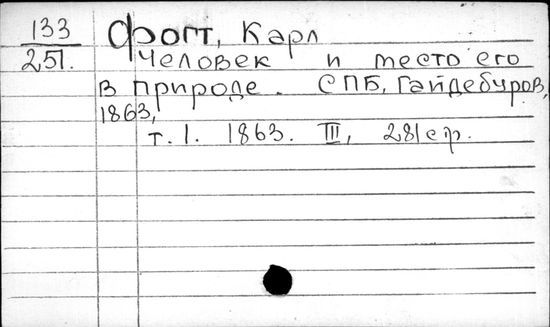 133 Фогт, Карл
251. Человек и место его
в природе. СПБ, Гайдебуров,
1863,
т. 1. 1863. III, 281 ср.